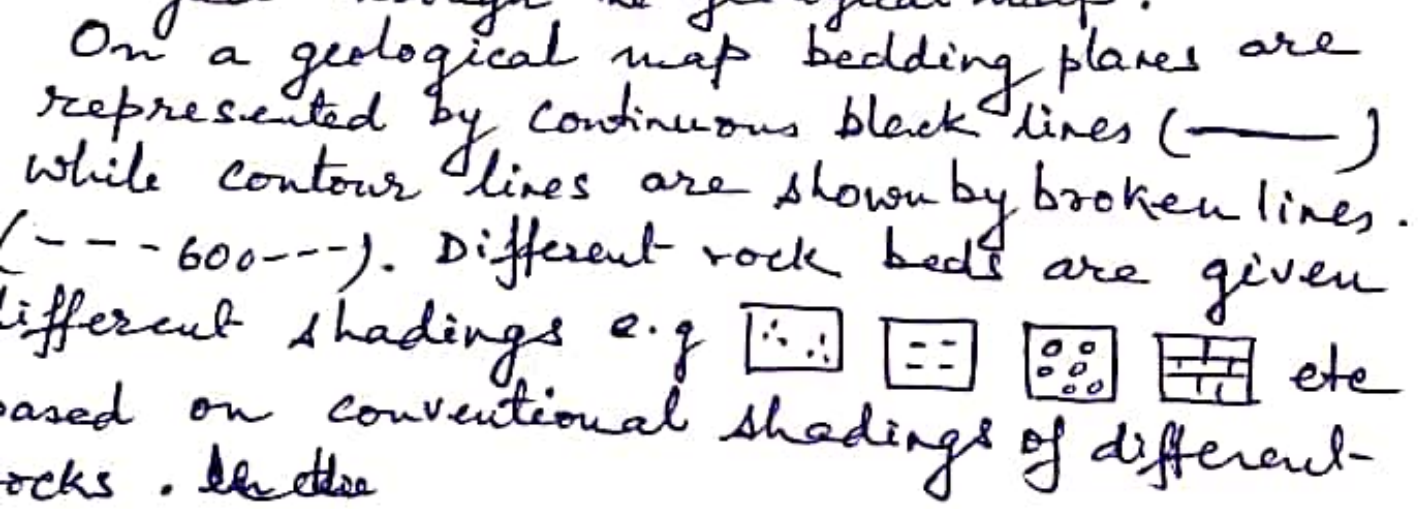 through the geological map.
On a geological map bedding planes are
represented by continuous black lines (———)
while contour lines are shown by broken lines.
(- - - 600 - - -). Different rock beds are given
different shadings e.g etc
based on conventional shadings of different
rocks.